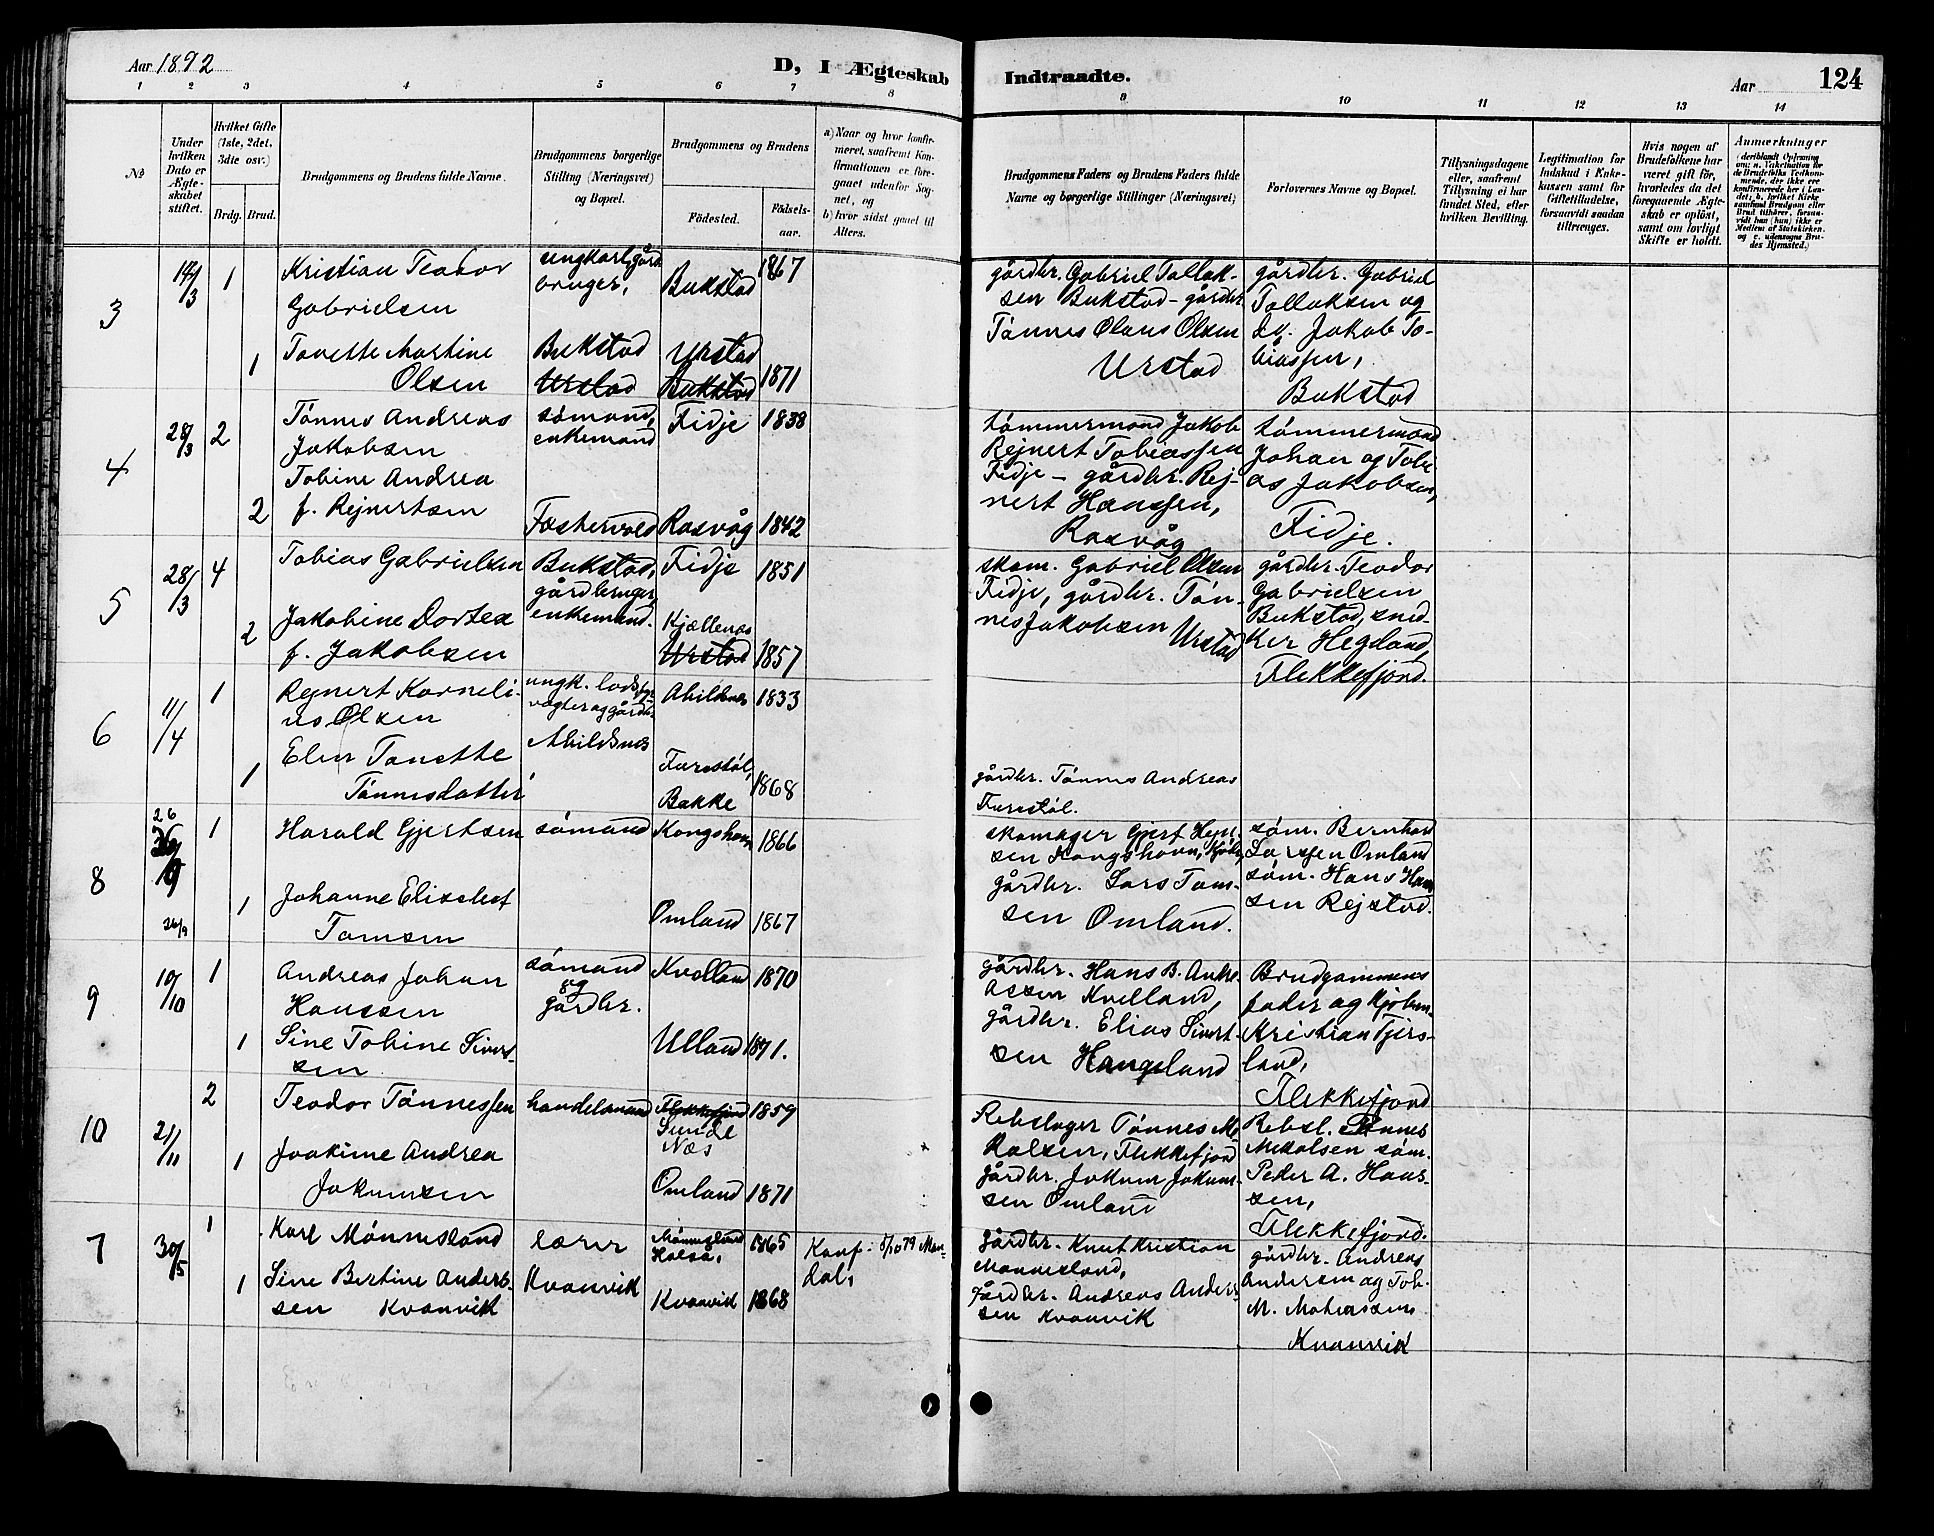 Aar 1892
D, I Ægteskab Indtraadte.
Aar
124
1 2 3 4 5 6 7 8 9 10 11 12 13 14
No
Under hvilken Dato er Ægteskabet stiftet.
Hvilket Gifte (1ste, 2det, 3die osv.)
Brdg. Brud.
Brudgommens og Brudens fulde Navne.
Brudgommens borgerlige Stilling (Næringsvei) og Bopæl.
Brudgommens og Brudens
Fødested.
Fødselsaar.
a) Naar og hvor konfirmeret, saafremt Konfirmationen er foregaaet udenfor Sognet, og
b) hvor sidst gaaet til Alters.
Brudgommens Faders og Brudens Faders fulde Navne og borgerlige Stillinger (Næringsvei)
Forlovernes Navne og Bopæl.
Tillysningsdagene eller, saafremt Tillysning ei har fundet Sted, efter hvilken Bevilling.
Legitimation for Indskud i Enkekassen samt for Giftetilladelse, forsaavidt saadan tiltrænges.
Hvis nogen af Brudefolkene har været gift før, hvorledes da det foregaaende Ægteskab er opløst, samt om lovligt Skifte er holdt.
Anmærkninger
3
14/3 1
Kristian Teodor
Gabrielsen
ungkarl, gård
bruger,
Bukstad
1867
gårdbr. Gabriel Tollak-
sen Bukstad - gårdbr.
Tønnes Olaus Olsen
Urstad
gårdbr. Gabriel
Tollaksen og
do. Jakob To-
biassen,
Bukstad
1
Tonette Martine
Olsen
Bukstad
Urstad
Urstad
Bukstad
1871
4
28/3 2
Tønnes Andreas
Jakobsen
sømand,
enkemand
Fidje
1838
tømmermand Jakob
Rejnert Tobiassen
Fidje - gårdbr. Rej-
nert Hanssen,
Rasvåg
tømmermand
Johan og Tobi-
as Jakobsen,
Fidje.
2
Tobine Andrea
f. Rejnertsen
Fæstervold
Rasvåg
1842
5
28/3 4
Tobias Gabrielsen
Bukstad,
gårdbruger,
enkemand.
Fidje
1851
skom. Gabriel Olsen
Fidje, gårdbr. Tøn-
nes Jakobsen
Urstad
gårdbr. Teodor
Gabrielsen
Bukstad, sned-
ker Hegland,
Flekkefjord.
2
Jakobine Dortea
f. Jakobsen
Kjellenæs
Urstad
1857
6
11/4 1
Rejnert Korneli-
us Olsen
Abildsnes
Abildsnes
1833
1
Elen Tonette
Tønnesdatter
Furestøl,
Bakke
1868
gårdbr. Tønnes Andreas
Furestøl.
8
26
26/9
1
Harald Gjertsen
sømand
Kongshavn
1866
skomager Gjert Hen-
sen Kongshavn,
gårdbr. Lars Tom-
sen Omland.
søm. Bernhard
Larssen Omland
søm. Hans Han
sen Rejstad.
1
Johanne Elisabet
Tomsen
Omland
1867
9
10/10 1
Andreas Johan
Hanssen
sømand
og
gårdbr.
Kvelland
1870
gårdbr. Hans B.
Kvelland,
gårdbr. Elias Sivert-
sen Haugeland
Brudgommens
fader og
Kristian Tjørs-
land,
Flekkefjord
1
Sine Tobine Siverts-
sen
Ulland
1871.
10
21/11 2
Teodor Tønnessen
handelsmand
Flekkefjord
Sunde
Næs
1859
Rebslager Tønnes Mi-
kalsen, Flekkefjord
gårdbr. Jokum Jokum-
sen Omland
Rebsl. Tønnes
Mikalsen søm.
Peder A. Hans-
sen,
Flekkefjord.
1
Joakime Andrea
Jokumsen
Omland
1871
7
30/5 1
Karl Mønnesland
lærer
Kvanvik
Mønnesland
Halså,
1865
Konf. 5/10 79 Man-
dal,
gårdbr. Knut Kristian
Mønnesland,
gårdbr. Andreas Ander-
sen Kvanvik
gårdbr. Andreas
Andersen og Tob.
M. Mathiassen
Kvanvik
1
Sine Bertine Anders-
sen Kvanvik
Kvanvik
1868